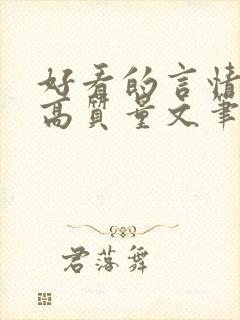 好看的言情
高质量文笔
君落舞